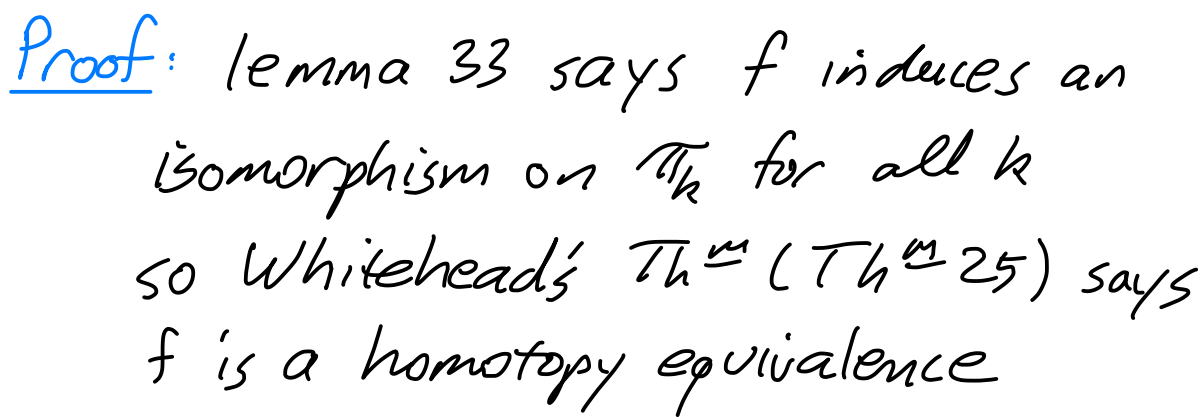 Proof: lemma 33 says f induces an
isomorphism on πₖ for all k
so Whitehead's Thᵐ (Thᵐ 25) says
f is a homotopy equivalence